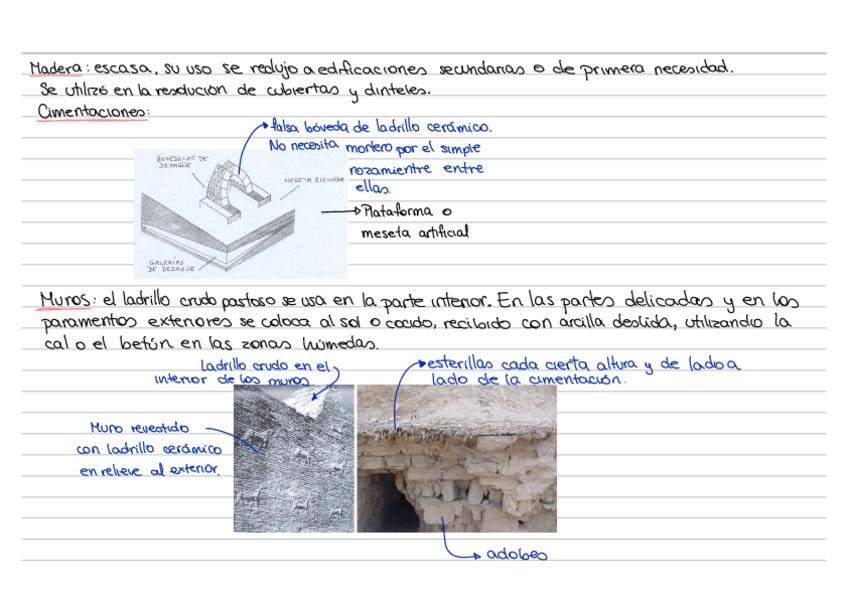 Madera: escasa, su uso se redujo a edificaciones secundarias o de primera necesidad.
Se utilizó en la resolución de cubiertas y dinteles.
Cimentaciones:
falsa bóveda de ladrillo cerámico.
No necesita mortero por el simple
rozamientre entre
ellas.
BOVEDILLAS DE
DESAGÜE
MESETA ELEVADA
Plataforma o
meseta artificial
GALERÍAS
DE DESAGÜE
Muros: el ladrillo crudo pastoso se usa en la parte interior. En las partes delicadas y en los
paramentos exteriores se coloca al sol o cocido, recibido con arcilla desleída, utilizando la
cal o el betún en las zonas húmedas.
Ladrillo crudo en el
interior de los muros
esterillas cada cierta altura y de lado a
lado de la cimentación.
Muro revestido
con ladrillo cerámico
en relieve al exterior.
adobes